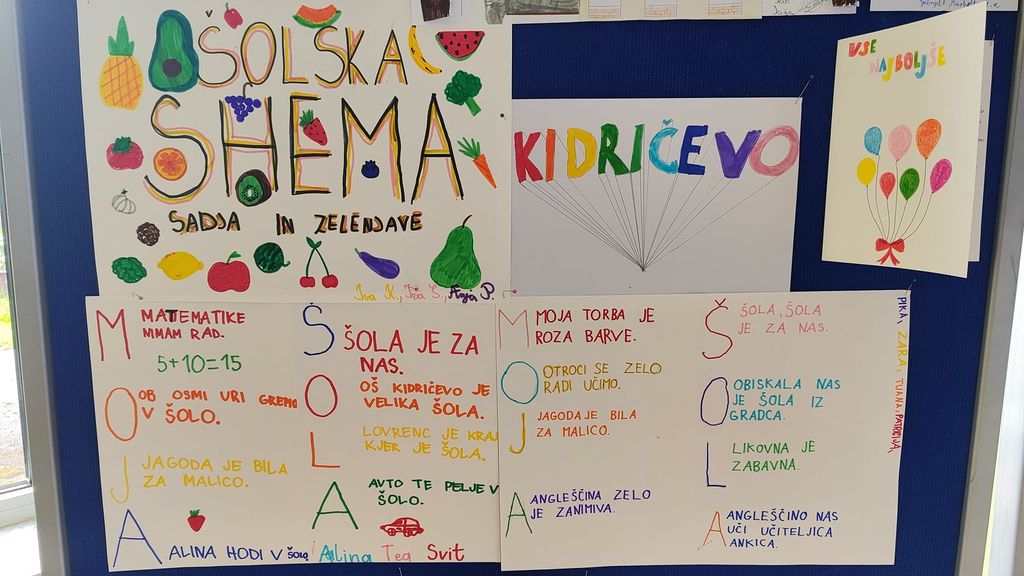 ŠOLSKA
SHEMA
SADJA IN ZELENJAVE
Iva K., Iva S., Anja P.
KIDRIČEVO
VSE
NAJBOLJŠE
M
MATEMATIKE
NIMAM RAD.
5+10=15
O
OB OSMI URI GREMO
V ŠOLO.
J
JAGODA JE BILA
ZA MALICO.
A
ALINA HODI V ŠOLO
Š
ŠOLA JE ZA
NAS.
O
OŠ KIDRIČEVO JE
VELIKA ŠOLA.
L
LOVRENC JE KRAJ
KJER JE ŠOLA.
A
AVTO TE PELJE V
ŠOLO.
Alina Tea Svit
M
MOJA TORBA JE
ROZA BARVE.
O
OTROCI SE ZELO
RADI UČIMO.
J
JAGODA JE BILA
ZA MALICO.
A
ANGLEŠČINA ZELO
JE ZANIMIVA.
Š
ŠOLA, ŠOLA
JE ZA NAS.
O
OBISKALA NAS
JE ŠOLA IZ
GRADCA.
L
LIKOVNA JE
ZABAVNA.
A
ANGLEŠČINO NAS
UČI UČITELJICA
ANKICA.
PIKA, ZARA, TIJANA, PATRICIJA,